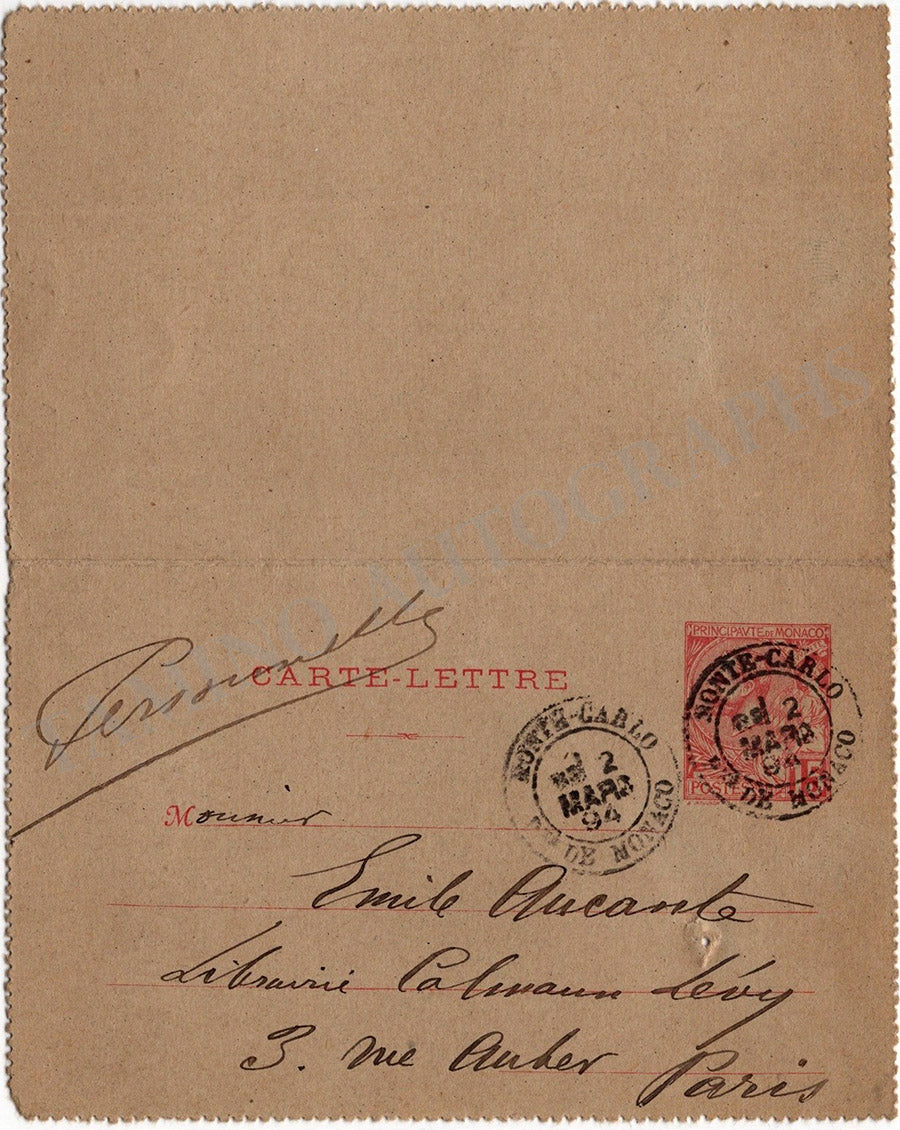 TAMINO AUTOGRAPHS
Personnelle
CARTE-LETTRE
PRINCIPAVTE DE MONACO
POSTES 15
MONTE-CARLO
2
MARS
94
DE MONACO
MONTE-CARLO
2
MARS
94
DE MONACO
Monsieur
Emile Aucante
Librairie Calmann Lévy
3. rue Auber Paris